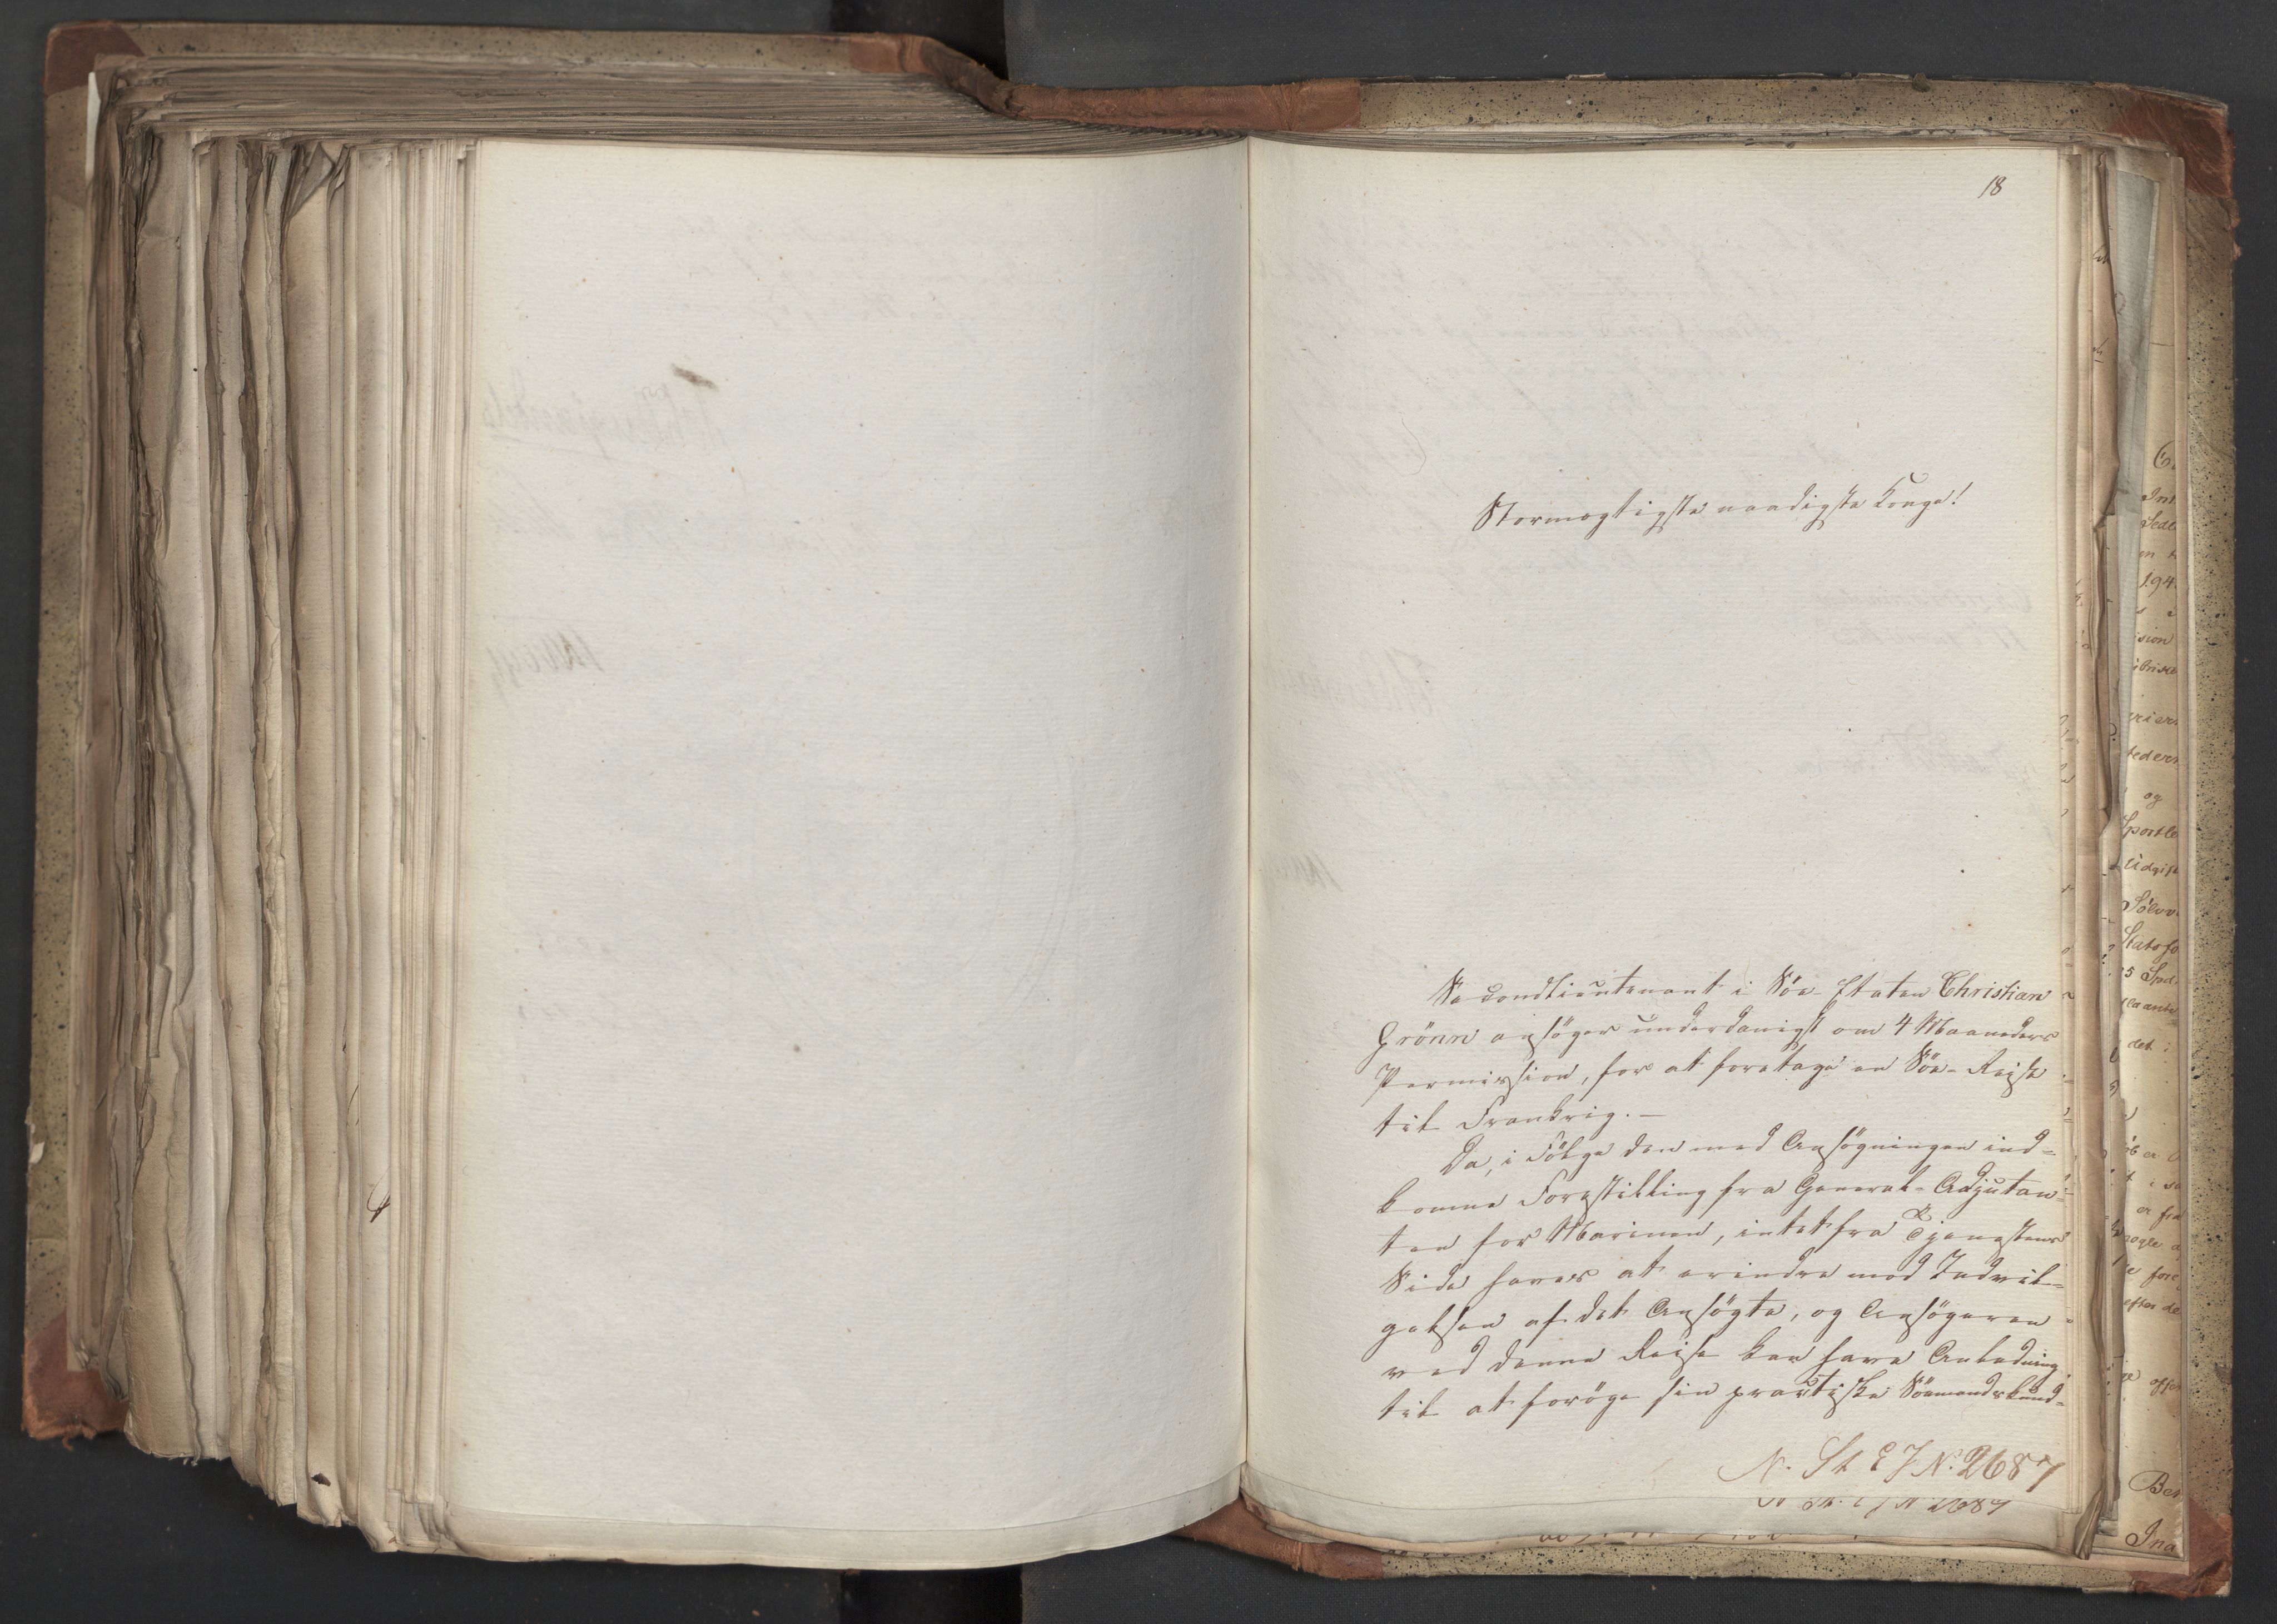 18
Stormægtigste naadigste Konge!
Secondlieutenant i Söe-Etaten Christian
Grönn ansöger underdanigst om 4 Maaneders
Permission, for at foretage en Söe-Reise
til Frankrig. —
Da, i Fölge den med Ansögningen ind-
komne Forestilling fra General-Adjutan-
ten for Marinen, intet fra Tjenestens
Side haves at erindre mod Indvil-
gelsen af det Ansögte, og Ansögeren
ved denne Reise kan have Anledning
til at foröge sin practiske Sömandskund-
N. St E J N. 2687